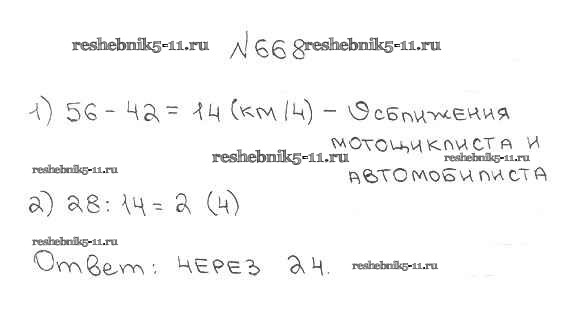 reshebnik5-11.ru №668 reshebnik5-11.ru
1) 56 - 42 = 14 (км/ч) - υсближения
reshebnik5-11.ru мотоциклиста и
reshebnik5-11.ru reshebnik5-11.ru
автомобилиста
2) 28 : 14 = 2 (ч)
reshebnik5-11.ru
Ответ: через 2ч. reshebnik5-11.ru